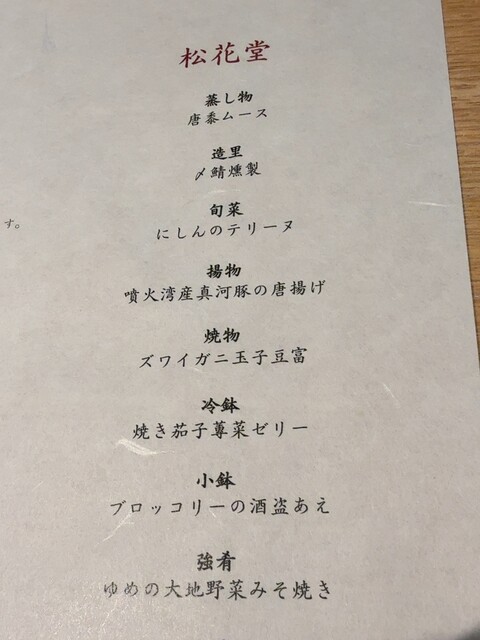 松花堂
蒸し物
唐黍ムース
造里
〆鯖燻製
旬菜
にしんのテリーヌ
揚物
噴火湾産真河豚の唐揚げ
焼物
ズワイガニ玉子豆富
冷鉢
焼き茄子蓴菜ゼリー
小鉢
ブロッコリーの酒盗あえ
強肴
ゆめの大地野菜みそ焼き
す。